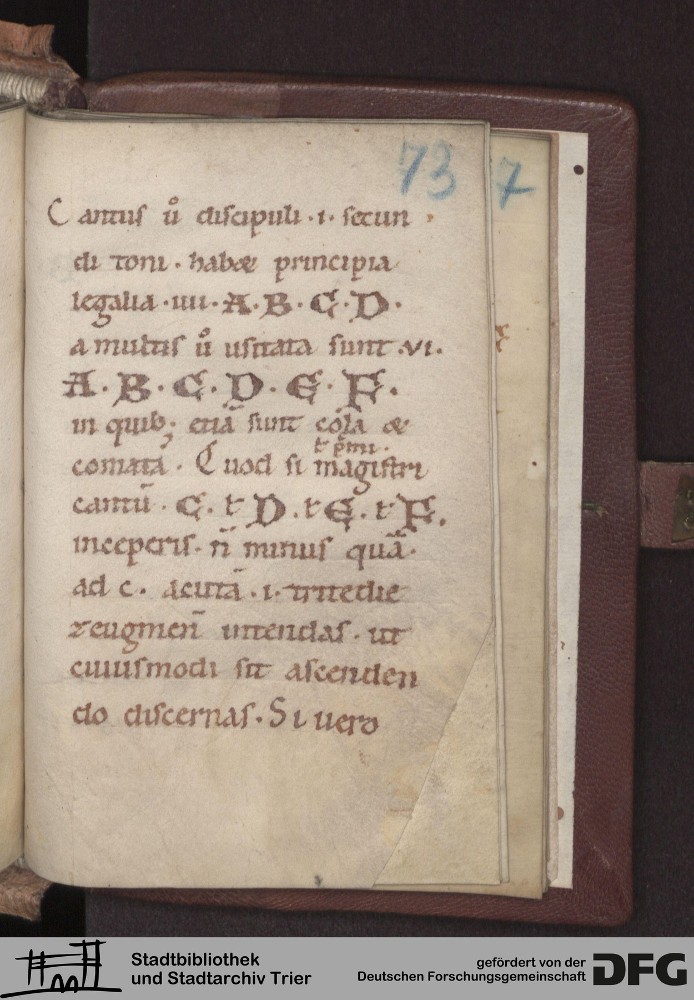 73 7
Cantus ů discipuli · i · secun
di toni · habꝫ principia
legalia · iiii · A · B · C · D ·
a multis ů usitata sunt · vi ·
A · B · C · D · E · F ·
in quibꝫ etiā sunt cóla &
ł p̄mi ·
comata · Quod si magistri
cantū · C · ł D · ł E · ł F ·
inceperis · n̄ minus quā ·
ad c · acutā · i · tritedie
zeugmen̄ intendas · ut
cuiusmodi sit ascenden
do discernas · Si vero
Stadtbibliothek
und Stadtarchiv Trier
gefördert von der
Deutschen Forschungsgemeinschaft
DFG